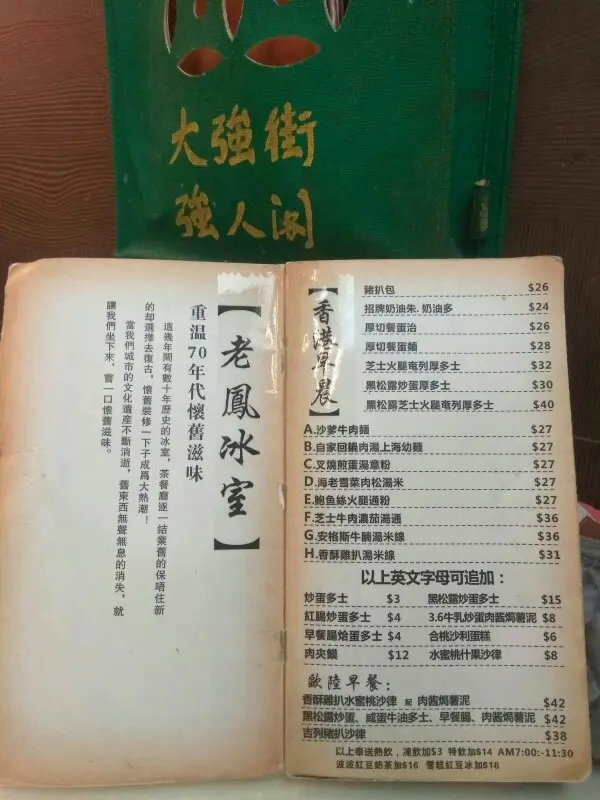 大強街
強人閣
【老鳳冰室】
重温70年代懷舊滋味
這幾年間有數十年歷史的冰室,茶餐廳逐一結業舊的保唔住新
的却選擇去復古,懷舊裝修一下子成爲大熱潮!
當我們城市的文化遺産不斷消逝,舊東西無聲無息的消失,就
讓我們坐下來,嘗一口懷舊滋味。
【香港早晨】
豬扒包 $26
招牌奶油朱. 奶油多 $24
厚切餐蛋治 $26
厚切餐蛋麵 $28
芝士火腿奄列厚多士 $32
黑松露炒蛋厚多士 $30
黑松露芝士火腿奄列厚多士 $40
A.沙爹牛肉麵 $27
B.自家回鍋肉湯上海幼麵 $27
C.叉燒煎蛋湯意粉 $27
D.海老雪菜肉松湯米 $27
E.鮑魚絲火腿通粉 $27
F.芝士牛肉濃茄湯通 $36
G.安格斯牛腩湯米線 $36
H.香酥雞扒湯米線 $31
以上英文字母可追加:
炒蛋多士 $3 黑松露炒蛋多士 $15
紅腸炒蛋多士 $4 3.6牛乳炒蛋肉酱焗薯泥 $8
早餐腸烚蛋多士 $4 合桃沙利蛋糕 $6
肉夾饃 $12 水蜜桃什果沙律 $8
歐陸早餐:
香酥雞扒水蜜桃沙律 配 肉酱焗薯泥 $42
黑松露炒蛋、咸蛋牛油多士、早餐腸、肉酱焗薯泥 $42
吉列豬扒沙律 $38
以上奉送熱飲,凍飲加$3 特飲加$14 AM7:00-11:30
波波紅豆奶茶加$16 雪糕紅豆冰加$16